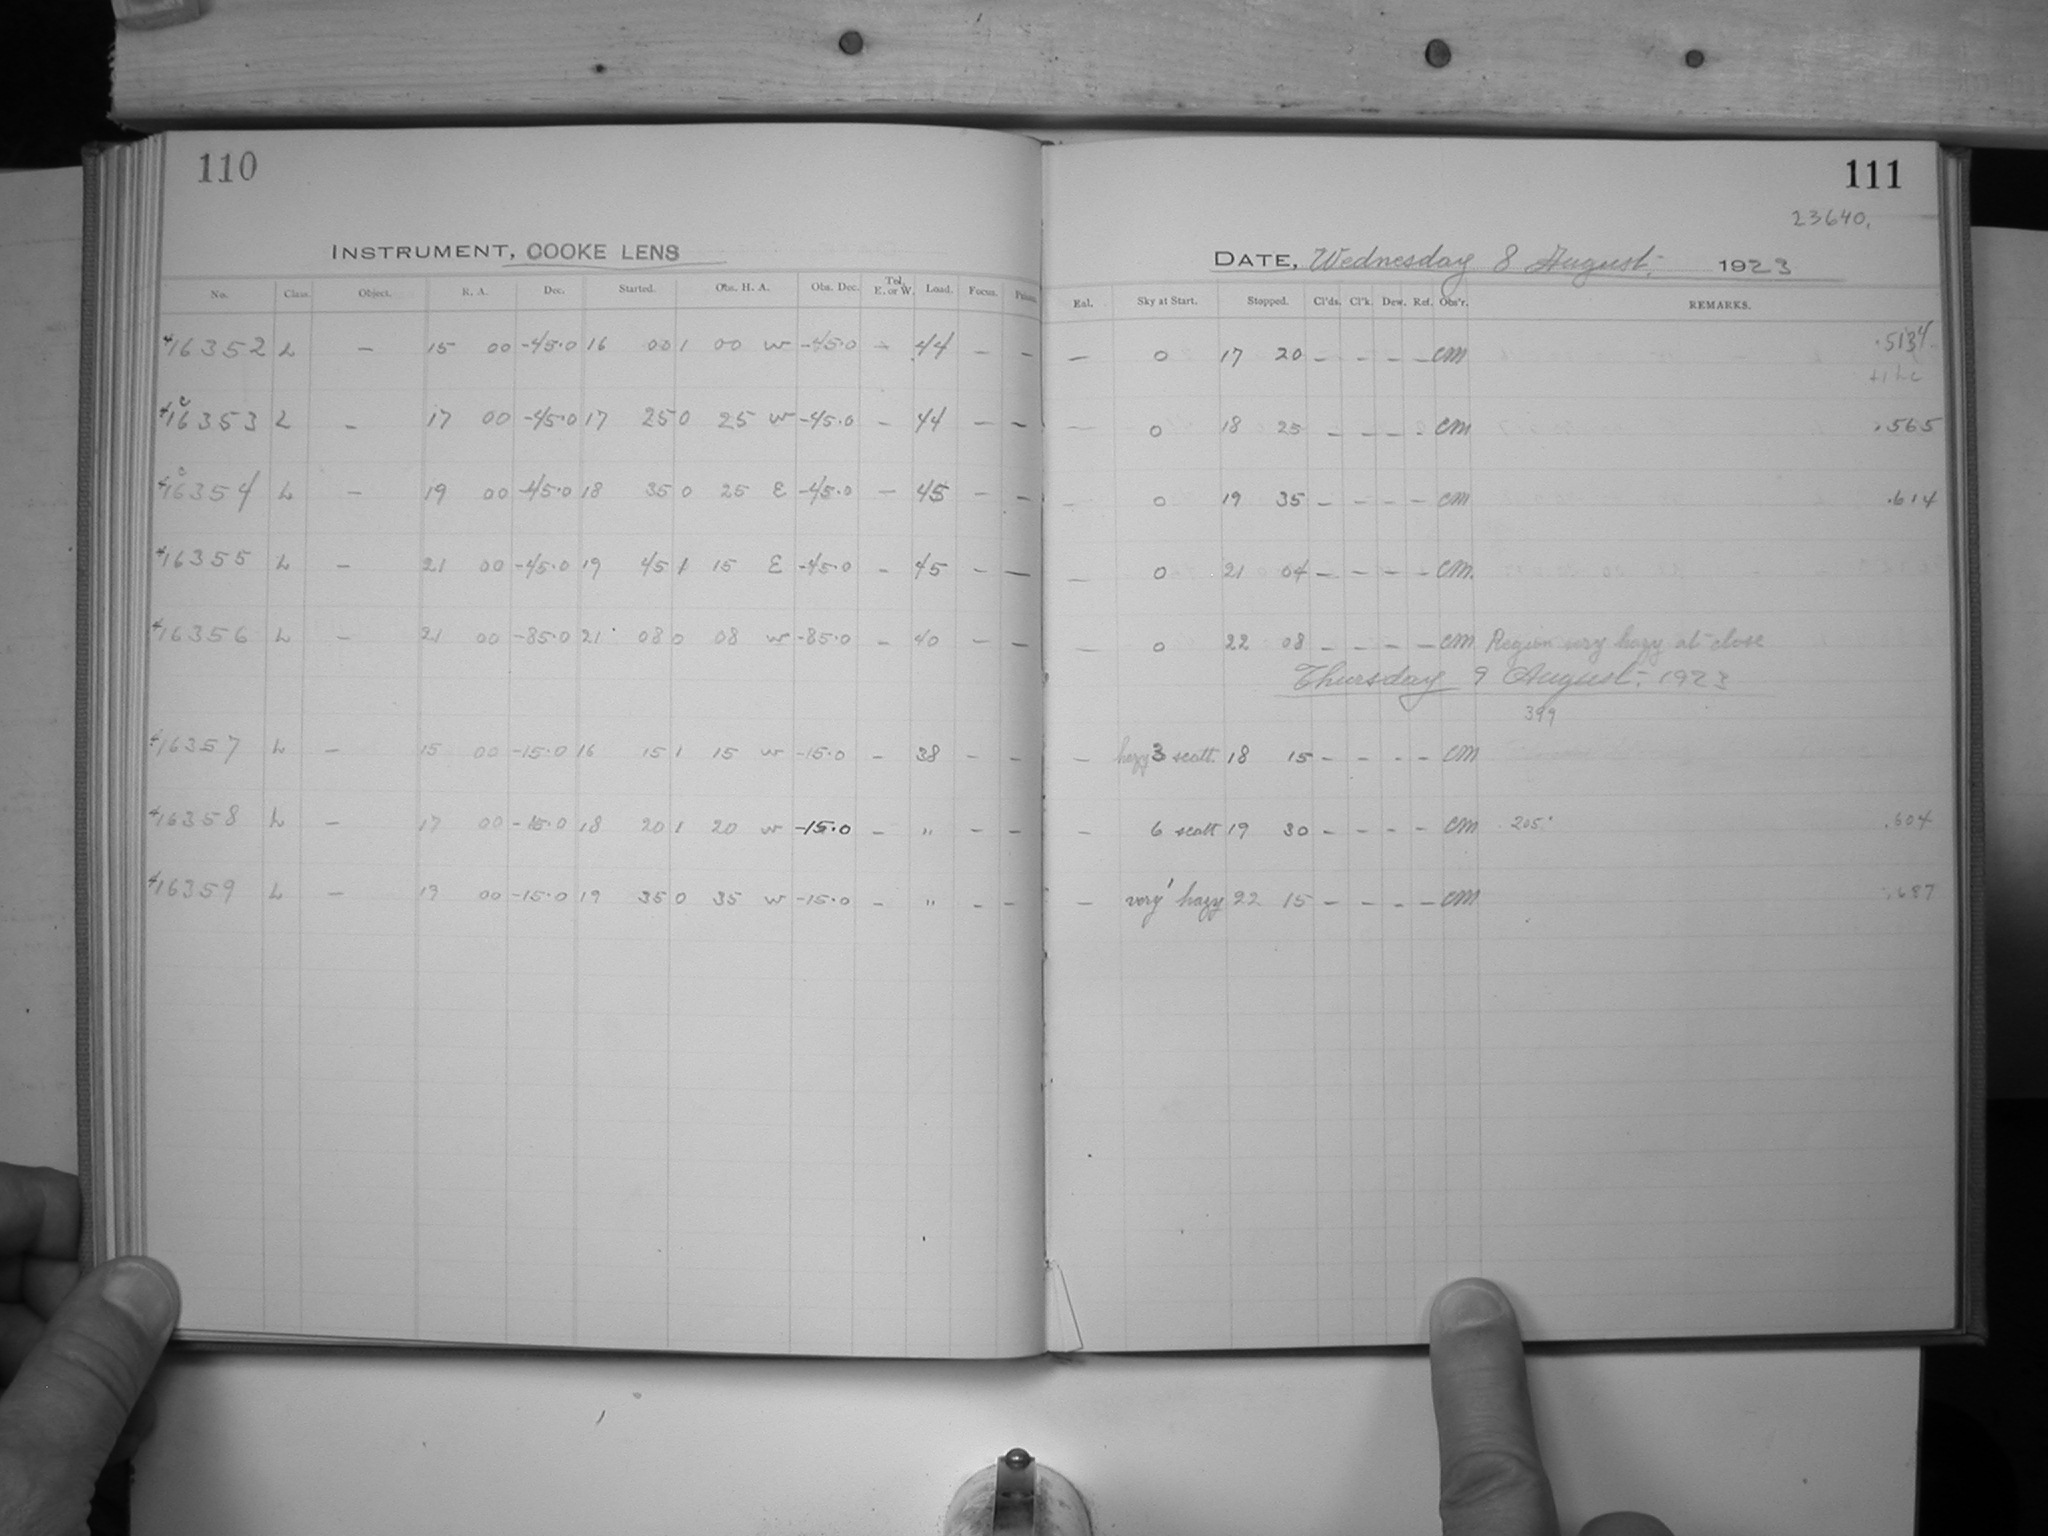 110
INSTRUMENT, COOKE LENS
No. Class. Object. R. A. Dec. Started. Obs. H. A. Obs. Dec. Tel. E. or W. Load. Focus.
16352 L – 15 00 -45.0 16 00 1 00 W -45.0 – 44 – –
16353 L – 17 00 -45.0 17 25 0 25 W -45.0 – 44 – –
16354 L – 19 00 -45.0 18 35 0 25 E -45.0 – 45 – –
16355 L – 21 00 -45.0 19 45 1 15 E -45.0 – 45 – –
16356 L – 21 00 -85.0 21 08 0 08 W -85.0 – 40 – –
16357 L – 15 00 -15.0 16 15 1 15 W -15.0 – 38 – –
16358 L – 17 00 -15.0 18 20 1 20 W -15.0 – " – –
16359 L – 19 00 -15.0 19 35 0 35 W -15.0 – " – –
111
23640.
DATE, Wednesday 8 August. 1923
Eal. Sky at Start. Stopped. Cl'ds. Cl'k. Dew. Ref. Obs'r. REMARKS.
– 0 17 20 – – – – CM
– 0 18 25 – – – CM .565
– 0 19 35 – – – – CM .614
– 0 21 04 – – – CM.
– 0 22 08 – – – – CM Region very hazy at close
Thursday 9 August. 1923
399
– hazy 3 scatt. 18 15 – – – – CM
– 6 scatt 19 30 – – – – CM 205 .604
– very hazy 22 15 – – – – CM .687